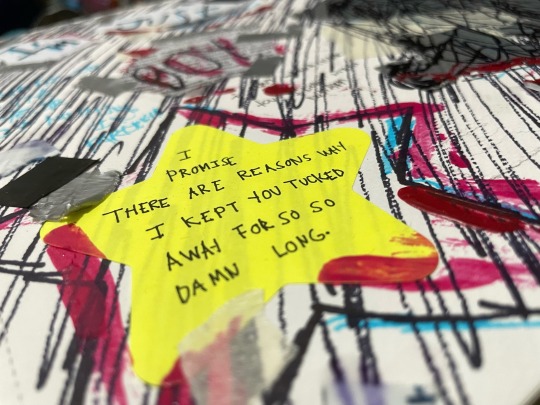 BOY
I
PROMISE
THERE ARE REASONS WHY
I KEPT YOU TUCKED
AWAY FOR SO SO
DAMN LONG.